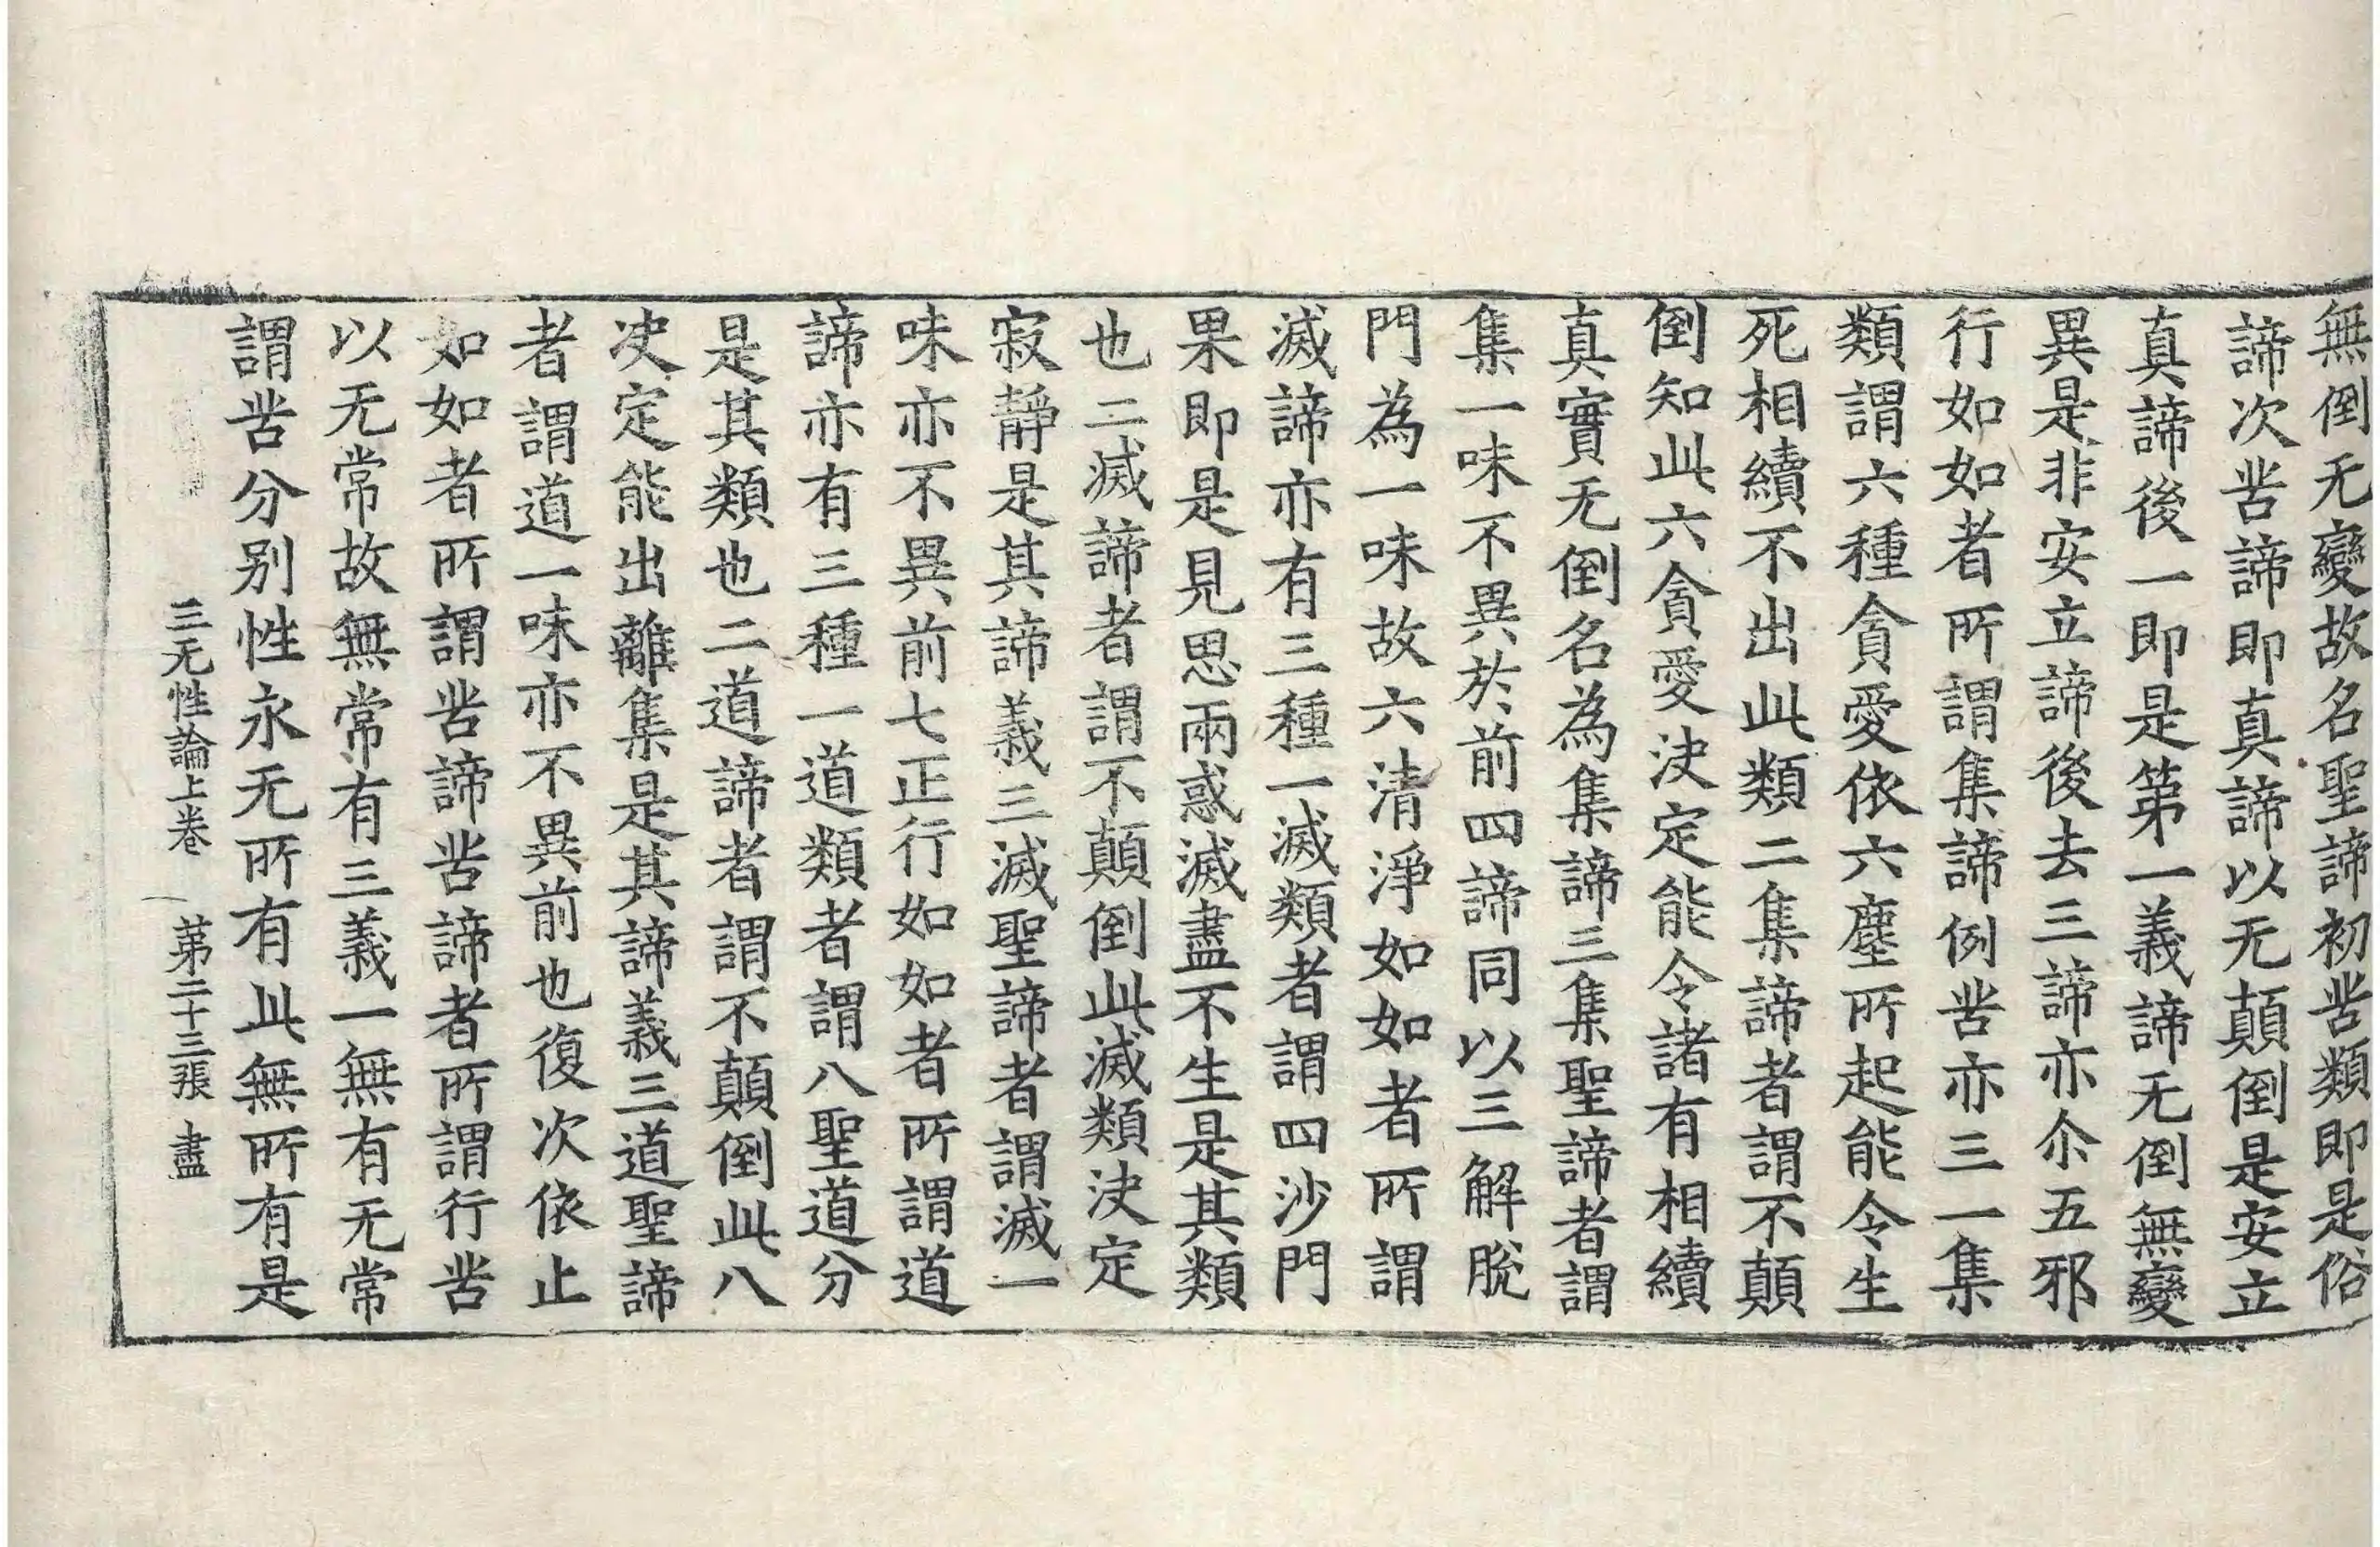 無倒无變故名聖諦初苦類即是俗
諦次苦諦即真諦以无顛倒是安立
真諦後一即是第一義諦无倒無變
異是非安立諦後去三諦亦尒五邪
行如如者所謂集諦例苦亦三一集
類謂六種貪愛依六塵所起能令生
死相續不出此類二集諦者謂不顛
倒知此六貪愛決定能令諸有相續
真實无倒名為集諦三集聖諦者謂
集一味不異於前四諦同以三解脫
門為一味故六清淨如如者所謂
滅諦亦有三種一滅類者謂四沙門
果即是見思兩惑滅盡不生是其類
也二滅諦者謂不顛倒此滅類決定
寂靜是其諦義三滅聖諦者謂滅一
味亦不異前七正行如如者所謂道
諦亦有三種一道類者謂八聖道分
是其類也二道諦者謂不顛倒此八
決定能出離集是其諦義三道聖諦
者謂道一味亦不異前也復次依止
如如者所謂苦諦苦諦者所謂行苦
以无常故無常有三義一無有无常
謂苦分别性永无所有此無所有是
三无性論上卷　第二十三張　盡